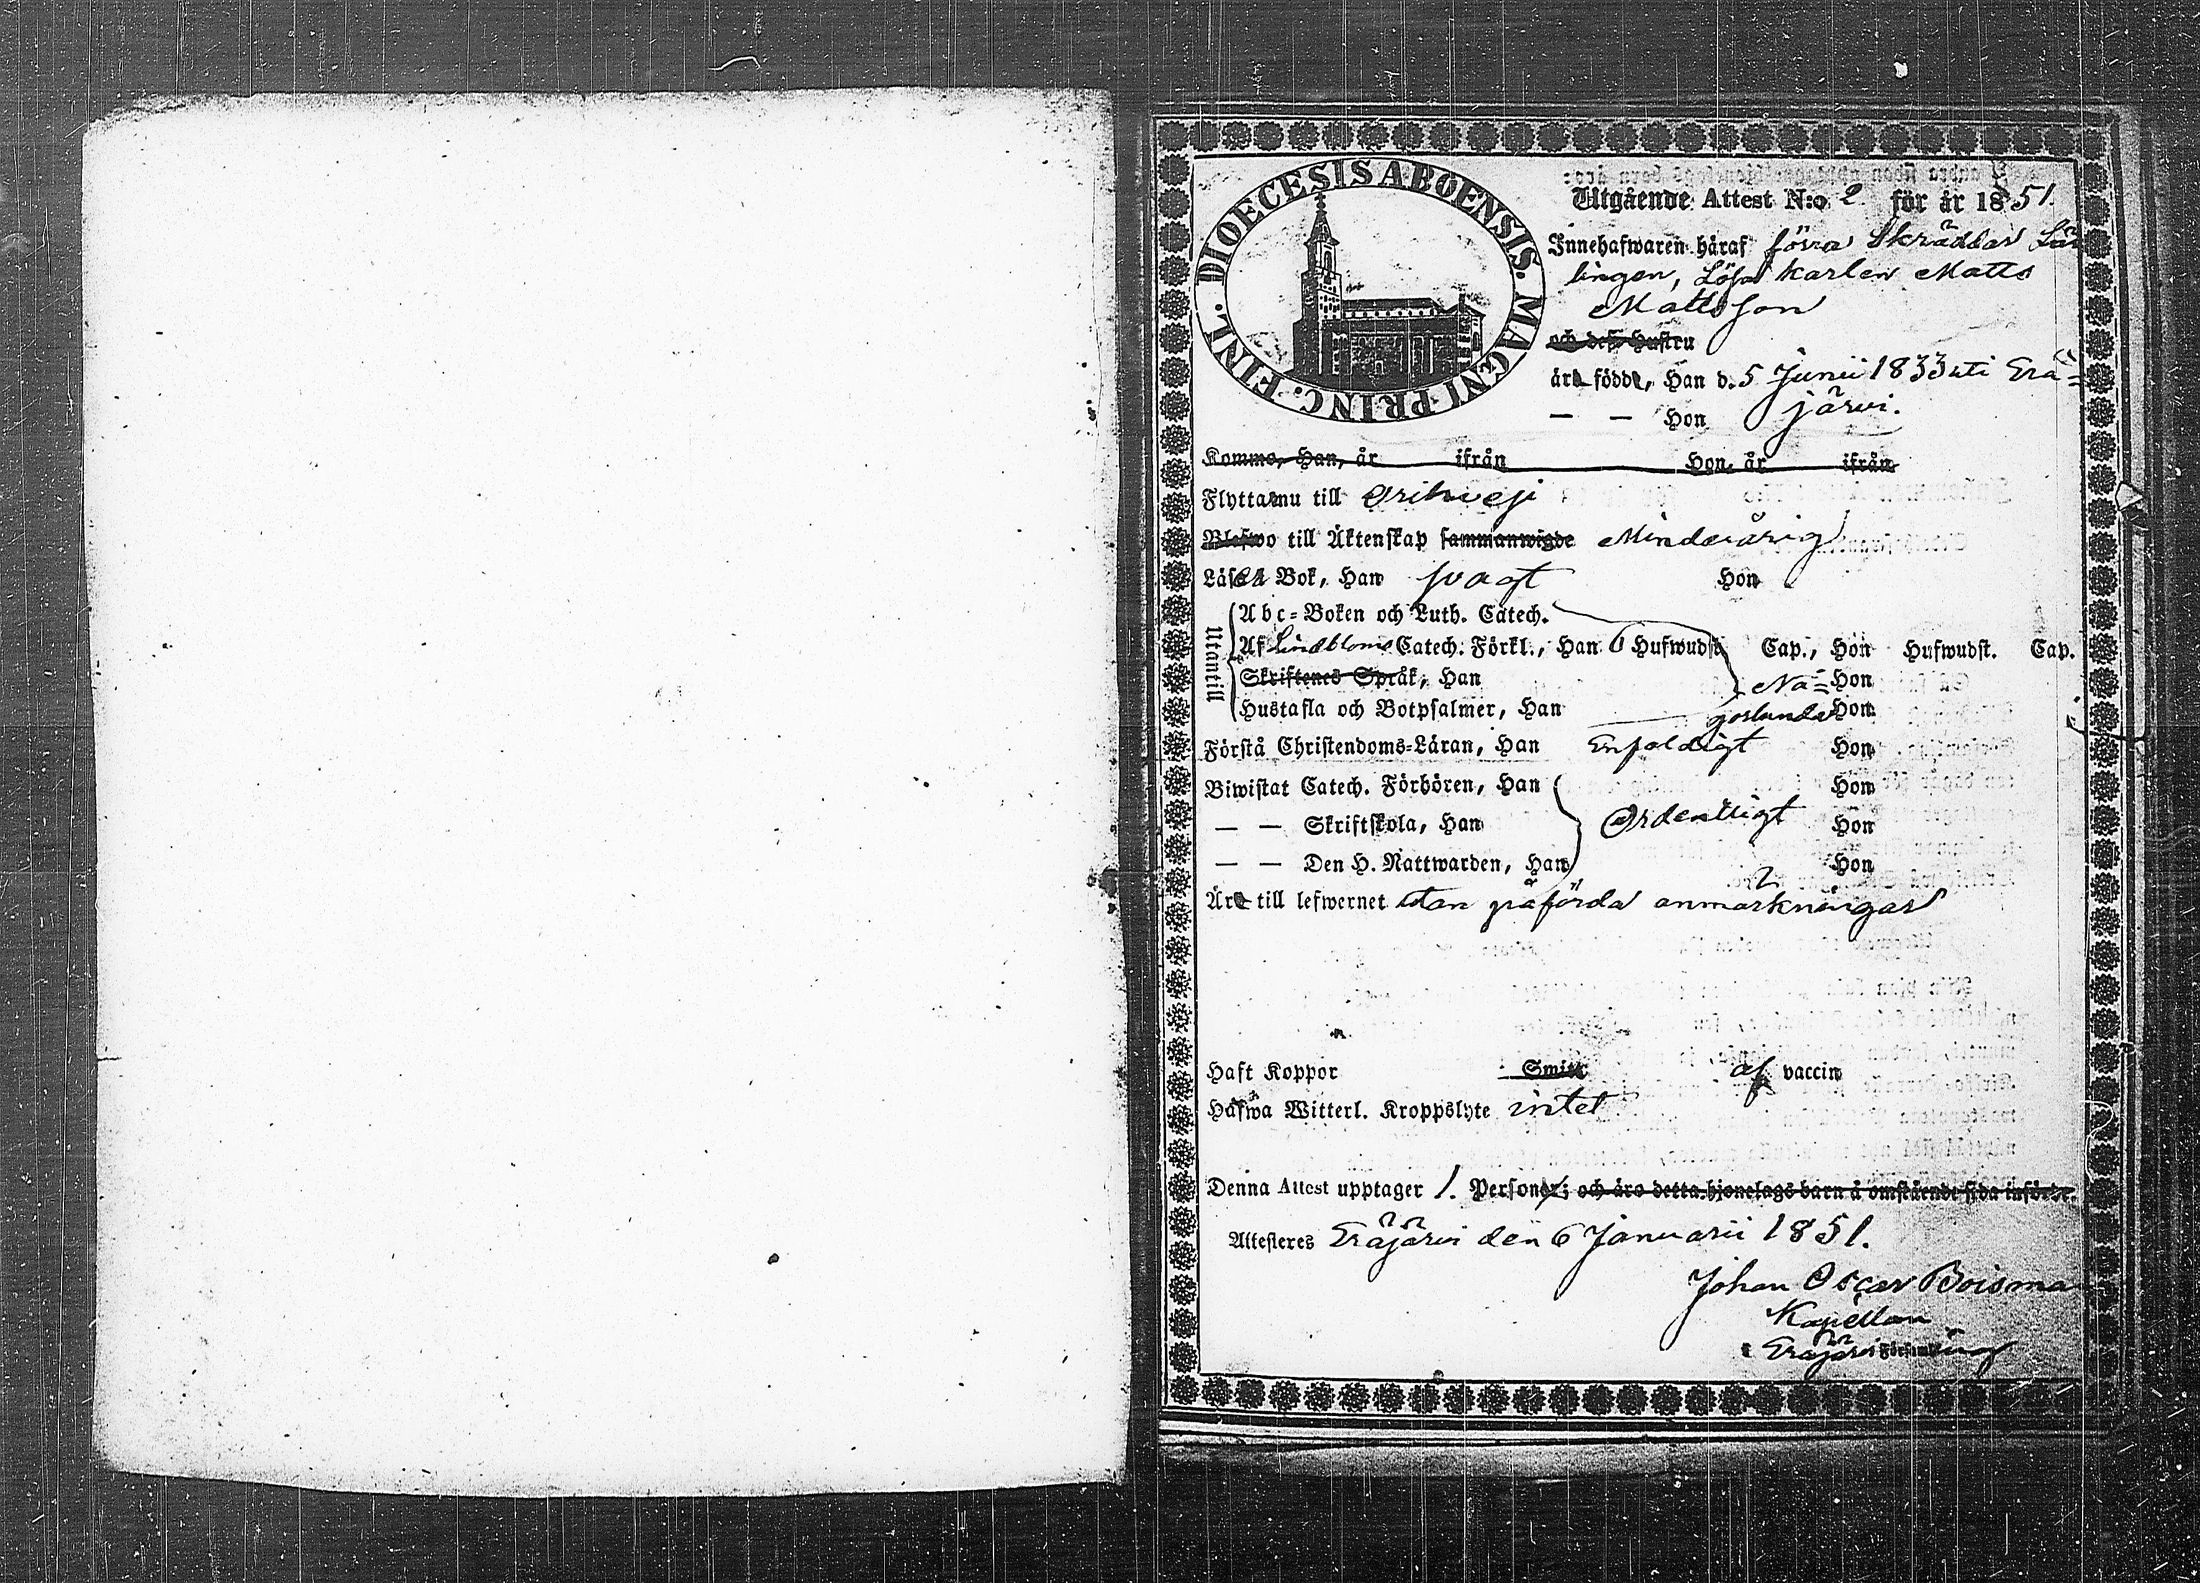 DIOECESIS ABOENSIS. MAGNI PRINC. FINL.
Utgående Attest N:o 2 för år 1851.
Innehafwaren häraf förra Skräddar Lär
lingen, Lösa karlen Matts
Mattsson
och deß Hustru
äro födde, Han d. 5 Junii 1833 uti Erä=
— — Hon järvi.
Kommo, Han, år ifrån Hon, år ifrån
Flytta nu till Orihvesi
Blefwo till Äktenskap sammanwigde Minderårig
Läsa i Bok, Han svagt Hon
Utantill
Abc=Boken och Luth. Catech.
Af Lindbloms Catech. Förkl., Han 6 Hufwudst. Cap., Hon Hufwudst. Cap.
Skriftenes Språk, Han Nå= Hon
Hustafla och Botpsalmer, Han gorlunda Hon
Förstå Christendoms=Läran, Han Enfaldigt Hon
Biwistat Catech. Förhören, Han Hon
— — Skriftskola, Han Ordentligt Hon
— — Den H. Nattwarden, Han Hon
Äro till lefwernet utan påförda anmärkningar
Haft Koppor Smitt af vaccin
Hafwa Witterl. Kroppslyte intet
Denna Attest upptager 1. Personer; och äro detta hjonelags barn å omstående sida införde.
Attesteres Eräjärvi den 6 Januarii 1851.
Johan Oscar Boisma
Kapellan
i Eräjärvi Församling